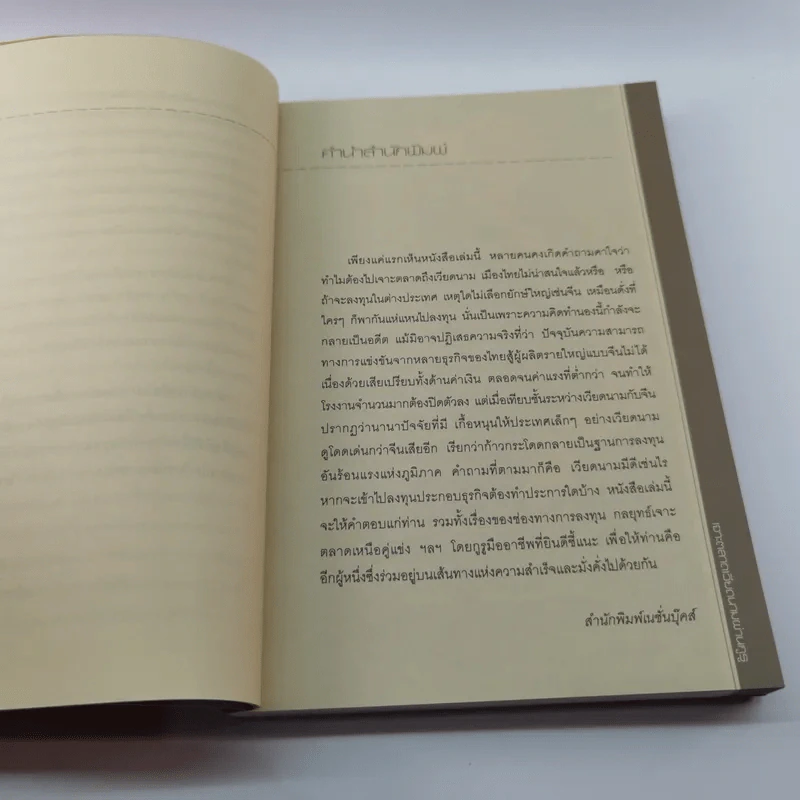 คำนำสำนักพิมพ์
เพียงแค่แรกเห็นหนังสือเล่มนี้ หลายคนคงเกิดคำถามคาใจว่า
ทำไมต้องไปเจาะตลาดถึงเวียดนาม เมืองไทยไม่น่าสนใจแล้วหรือ หรือ
ถ้าจะลงทุนในต่างประเทศ เหตุใดไม่เลือกยักษ์ใหญ่เช่นจีน เหมือนดั่งที่
ใครๆ ก็พากันแห่แหนไปลงทุน นั่นเป็นเพราะความคิดทำนองนี้กำลังจะ
กลายเป็นอดีต แม้มิอาจปฏิเสธความจริงที่ว่า ปัจจุบันความสามารถ
ทางการแข่งขันจากหลายธุรกิจของไทยสู้ผู้ผลิตรายใหญ่แบบจีนไม่ได้
เนื่องด้วยเสียเปรียบทั้งด้านค่าเงิน ตลอดจนค่าแรงที่ต่ำกว่า จนทำให้
โรงงานจำนวนมากต้องปิดตัวลง แต่เมื่อเทียบชั้นระหว่างเวียดนามกับจีน
ปรากฏว่านานาปัจจัยที่มี เกื้อหนุนให้ประเทศเล็กๆ อย่างเวียดนาม
ดูโดดเด่นกว่าจีนเสียอีก เรียกว่าก้าวกระโดดกลายเป็นฐานการลงทุน
อันร้อนแรงแห่งภูมิภาค คำถามที่ตามมาก็คือ เวียดนามมีดีเช่นไร
หากจะเข้าไปลงทุนประกอบธุรกิจต้องทำประการใดบ้าง หนังสือเล่มนี้
จะให้คำตอบแก่ท่าน รวมทั้งเรื่องของช่องทางการลงทุน กลยุทธ์เจาะ
ตลาดเหนือคู่แข่ง ฯลฯ โดยกูรูมืออาชีพที่ยินดีชี้แนะ เพื่อให้ท่านคือ
อีกผู้หนึ่งซึ่งร่วมอยู่บนเส้นทางแห่งความสำเร็จและมั่งคั่งไปด้วยกัน
สำนักพิมพ์เนชั่นบุ๊คส์